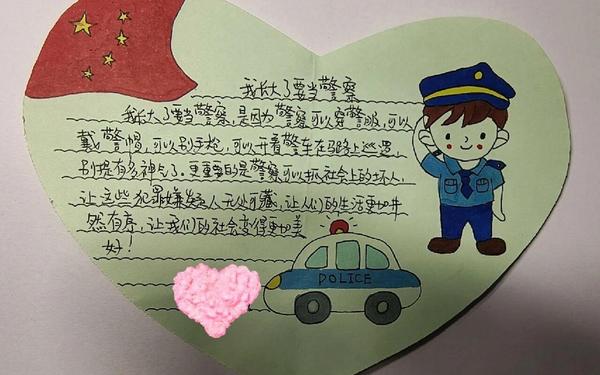 我长大了要当警察
我长大了要当警察,是因为警察可以穿警服,可以
戴警帽,可以别手枪,可以开着警车在马路上巡逻,
别提有多神气了。更重要的是警察可以抓社会上的坏人,
让这些犯罪嫌疑人无处可藏,让人们的生活更加井
然有序,让我们的社会变得更加美
好!
POLICE